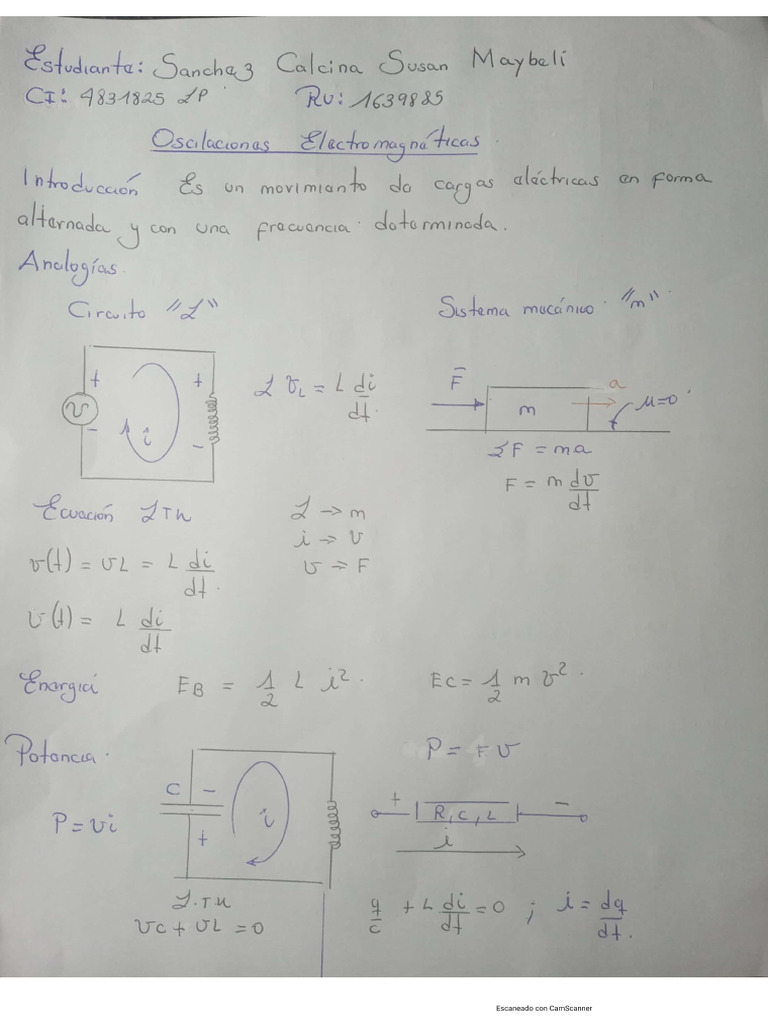 Estudiante: Sanchez Calcina Susan Maybeli
CI: 4831825 LP RU: 1639885
Oscilaciones Electromagnéticas.
Introducción Es un movimiento de cargas eléctricas en forma
alternada y con una frecuencia determinada.
Analogías.
Circuito "L" Sistema mecánico "m"
v + - i + -
L VL = L di/dt
F m a μ=0
ΣF = ma
F = m dv/dt
Ecuación LTK
L → m
i → v
v → F
v(t) = VL = L di/dt
v(t) = L di/dt
Energía EB = 1/2 L i² Ec = 1/2 m v²
Potencia.
P = F v
P = vi
C - + i
+ R, C, L -
i
L.TK
Vc + VL = 0
q/c + L di/dt = 0 ; i = dq/dt.
Escaneado con CamScanner